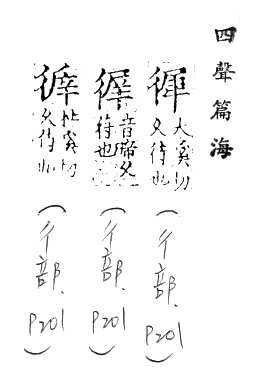 四聲篇海
大奚切
久待也
(彳部.P201)
音帝久
待也
(彳部.P201)
杜奚切
久待也
(彳部.P201)